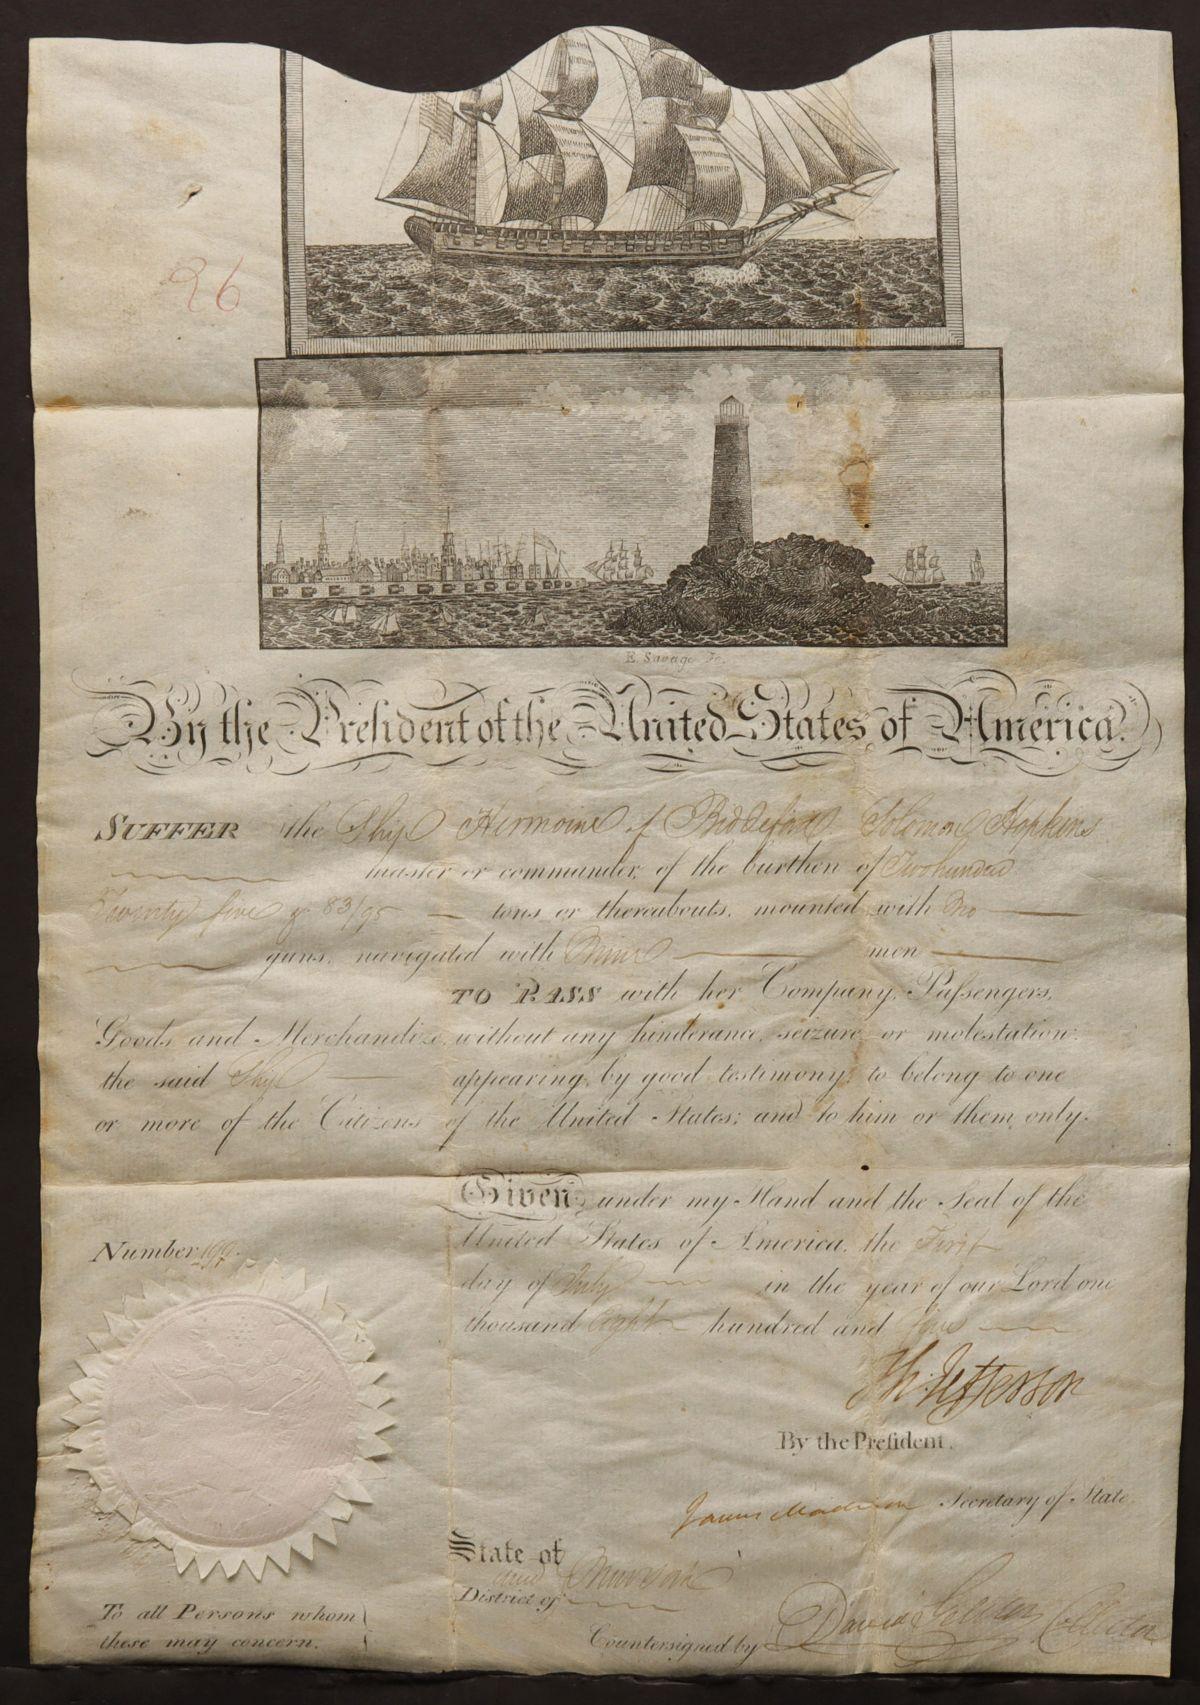 96
E. Savage Sc.
By the President of the United States of America.
SUFFER the Ship Hermoine of Biddeford Solomon Hopkins
master or commander, of the burthen of Two hundred
Twenty five & 83/95 tons or thereabouts, mounted with no
guns, navigated with Nine men
TO PASS with her Company, Passengers,
Goods and Merchandize, without any hinderance, seizure or molestation:
the said Ship appearing by good testimony to belong to one
or more of the Citizens of the United States; and to him or them only.
Given under my Hand and the Seal of the
United States of America, the First
day of July in the year of our Lord one
thousand Eight hundred and five
Number
Th: Jefferson
By the President.
James Madison Secretary of State.
State of
and New York
District of
To all Persons whom
these may concern.
Countersigned by David Gelston Collector